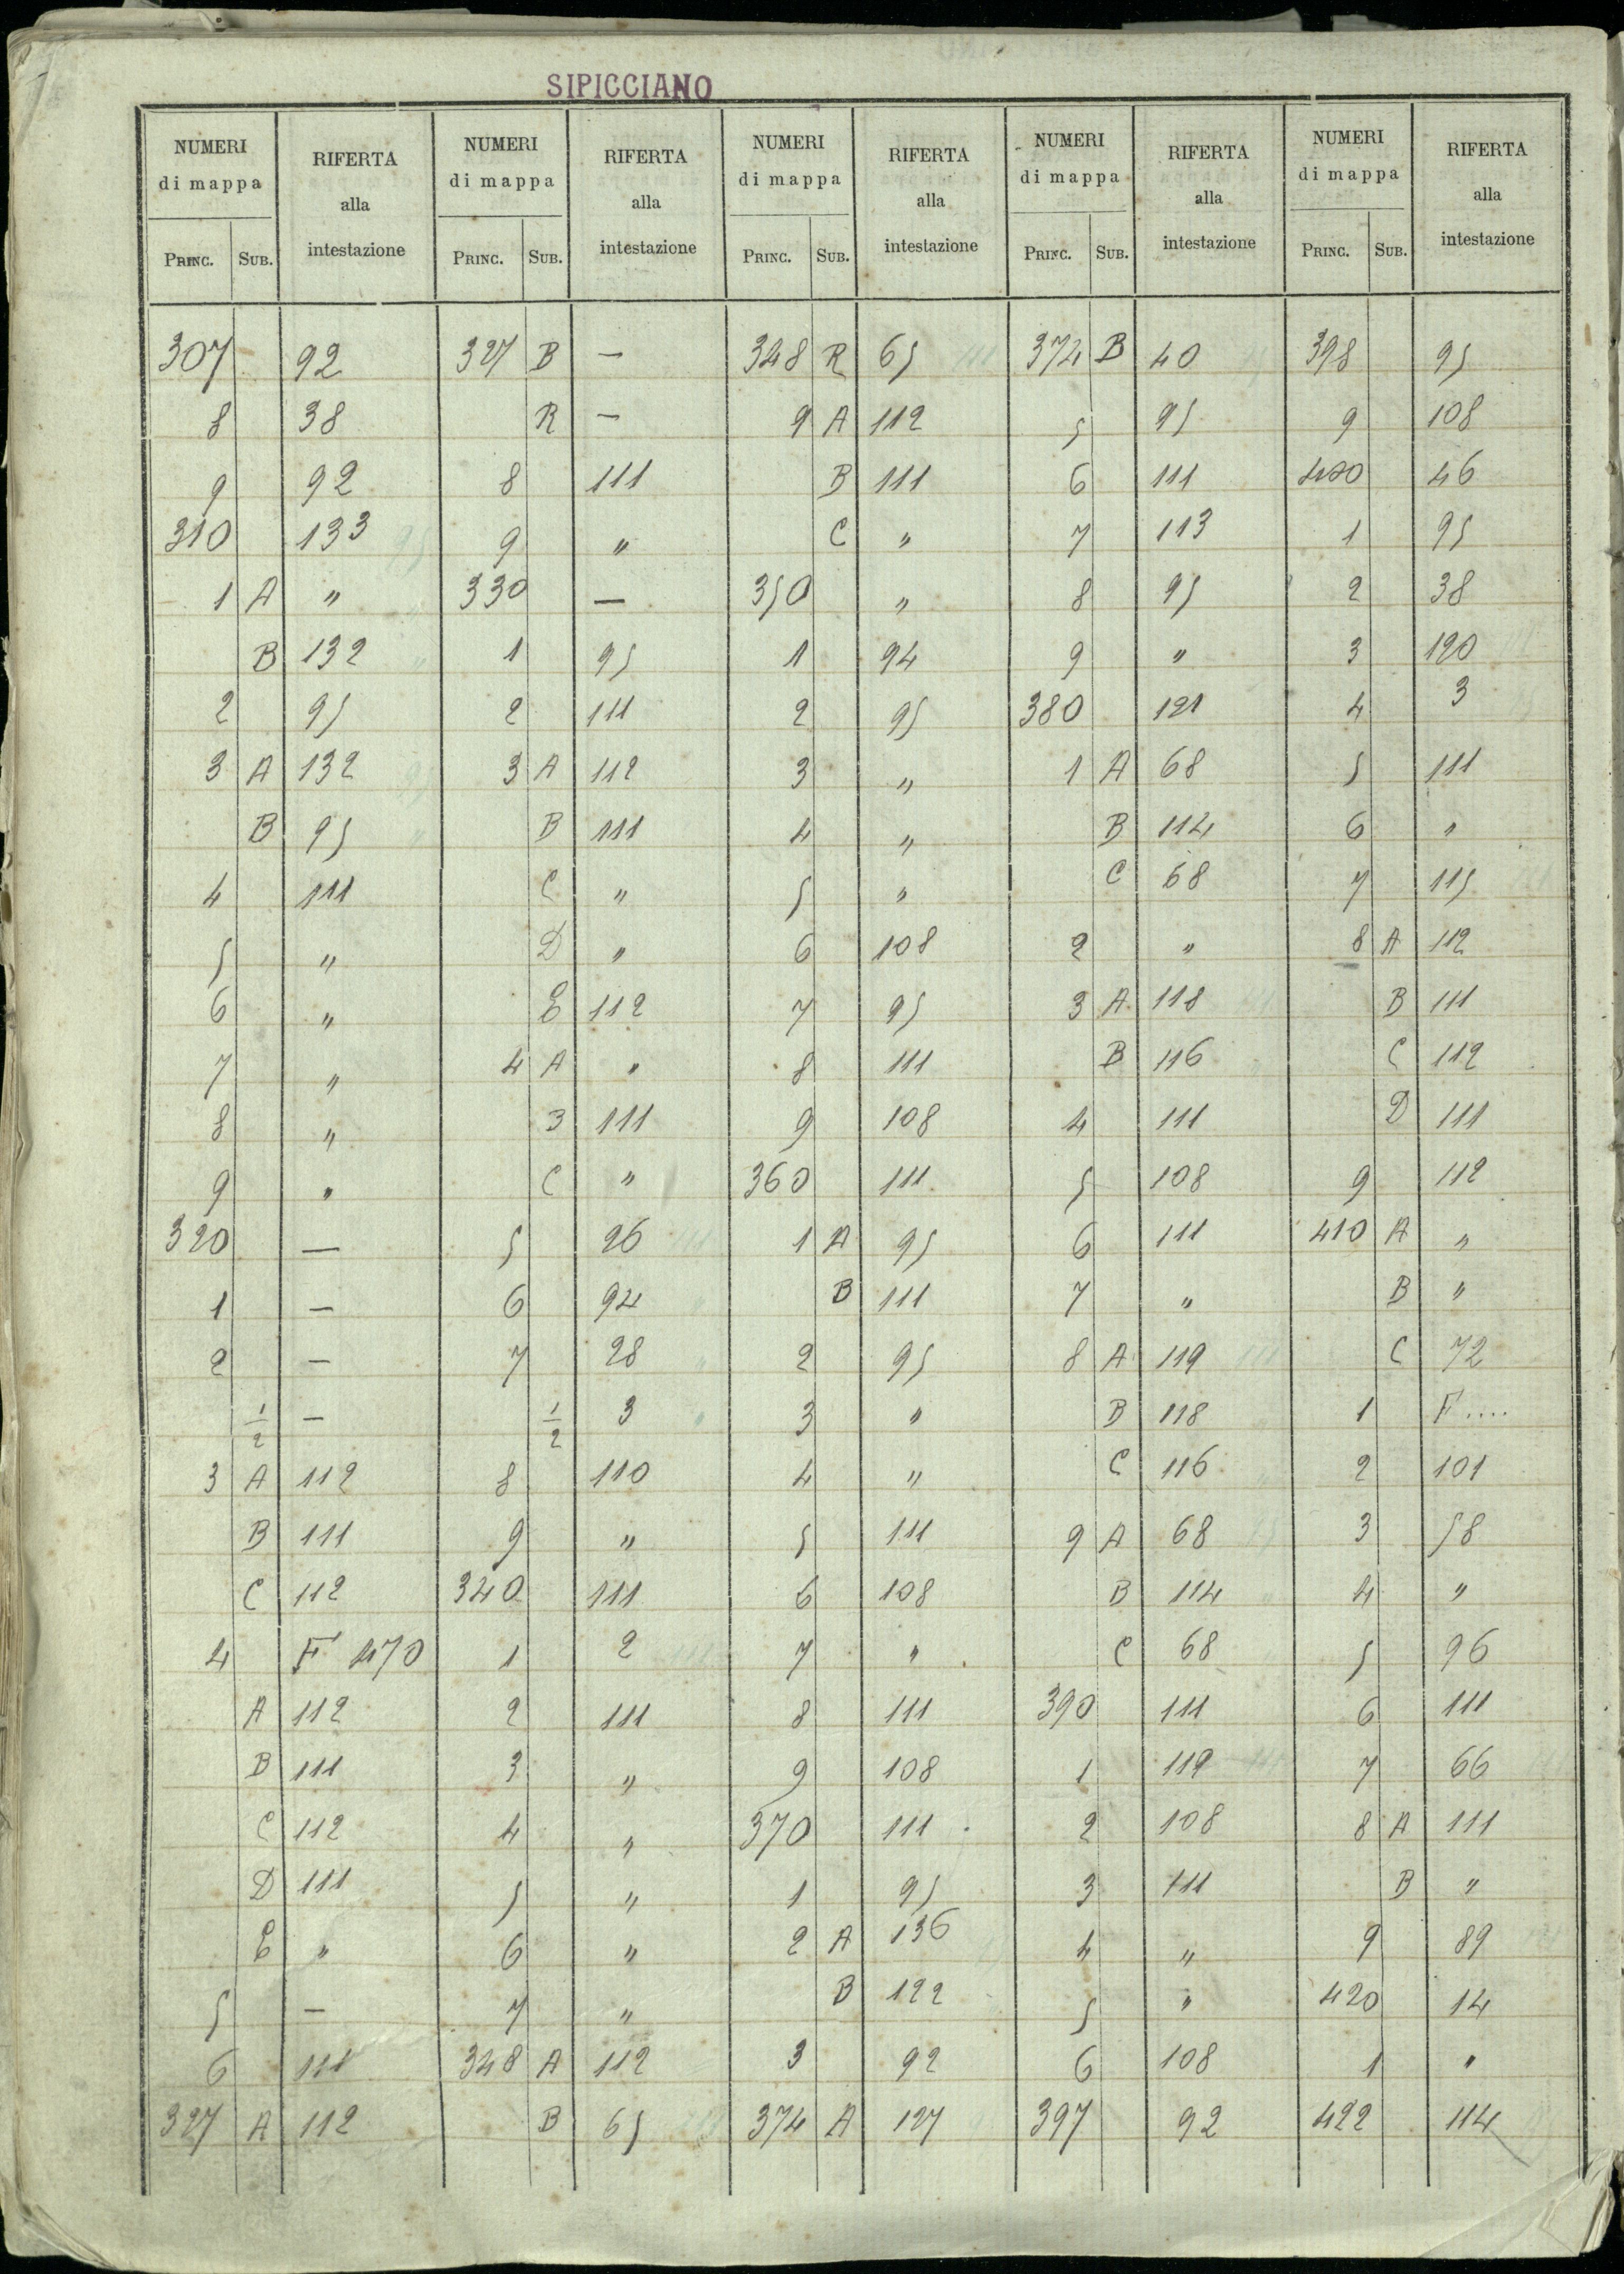 SIPICCIANO
NUMERI di mappa RIFERTA alla intestazione NUMERI di mappa RIFERTA alla intestazione NUMERI di mappa RIFERTA alla intestazione NUMERI di mappa RIFERTA alla intestazione NUMERI di mappa RIFERTA alla intestazione
PRINC. SUB. PRINC. SUB. PRINC. SUB. PRINC. SUB. PRINC. SUB.
307 92 327 B — 348 R 65 374 B 40 398 95
8 38 R — 9 A 112 5 95 9 108
9 92 8 111 B 111 6 111 400 46
310 133 9 " C " 7 113 1 95
1 A " 330 — 350 " 8 95 2 38
B 132 1 95 1 94 9 " 3 120
2 95 2 111 2 95 380 121 4 3
3 A 132 3 A 112 3 " 1 A 68 5 111
B 95 B 111 4 " B 114 6 "
4 111 C " 5 " C 68 7 115
5 " D " 6 108 2 " 8 A 112
6 " E 112 7 95 3 A 118 B 111
7 " 4 A " 8 111 B 116 C 112
8 " B 111 9 108 4 111 D 111
9 " C " 360 111 5 108 9 112
320 — 5 26 1 A 95 6 111 410 A "
1 — 6 94 B 111 7 " B "
2 — 7 28 2 95 8 A 119 C 72
1/2 — 1/2 3 3 " B 118 1 F ....
3 A 112 8 110 4 " C 116 2 101
B 111 9 " 5 111 9 A 68 3 58
C 112 340 111 6 108 B 114 4 "
4 F 470 1 2 7 " C 68 5 96
A 112 2 111 8 111 390 111 6 111
B 111 3 " 9 108 1 119 7 66
C 112 4 " 370 111 2 108 8 A 111
D 111 5 " 1 95 3 111 B "
E " 6 " 2 A 136 4 " 9 89
5 — 7 " B 122 5 " 420 14
6 111 348 A 112 3 92 6 108 1 "
327 A 112 B 65 374 A 127 397 92 422 114